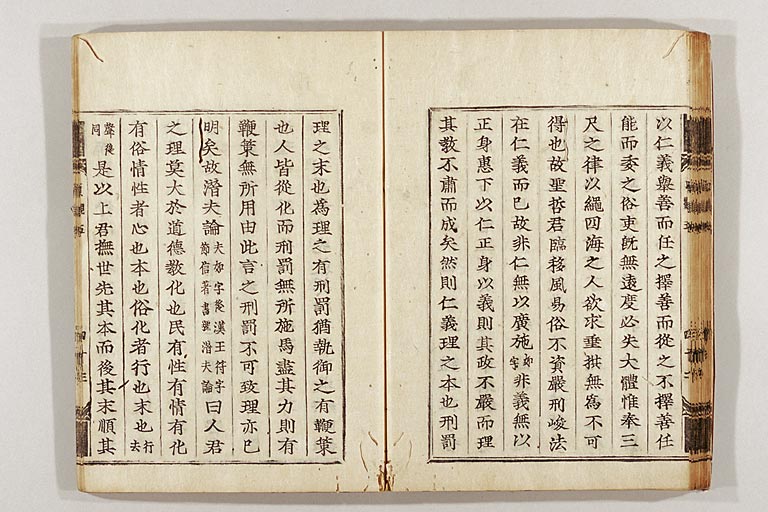 以仁義舉善而任之擇善而從之不擇善任
能而委之俗吏旣無遠度必失大體惟奉三
尺之律以繩四海之人欲求垂拱無爲不可
得也故聖哲君臨移風易俗不資嚴刑峻法
在仁義而已故非仁無以廣施非義無以
正身惠下以仁正身以義則其政不嚴而理
其敎不肅而成矣然則仁義理之本也刑罰
理之末也爲理之有刑罰猶執御之有鞭策
也人皆從化而刑罰無所施馬盡其力則有
鞭策無所用由此言之刑罰不可致理亦已
明矣故潛夫論夫如字後漢王符字節信著書號潛夫論曰人君
之理莫大於道德敎化也民有性有情有化
有俗情性者心也本也俗化者行也末也行去
聲後同是以上君撫世先其本而後其末順其